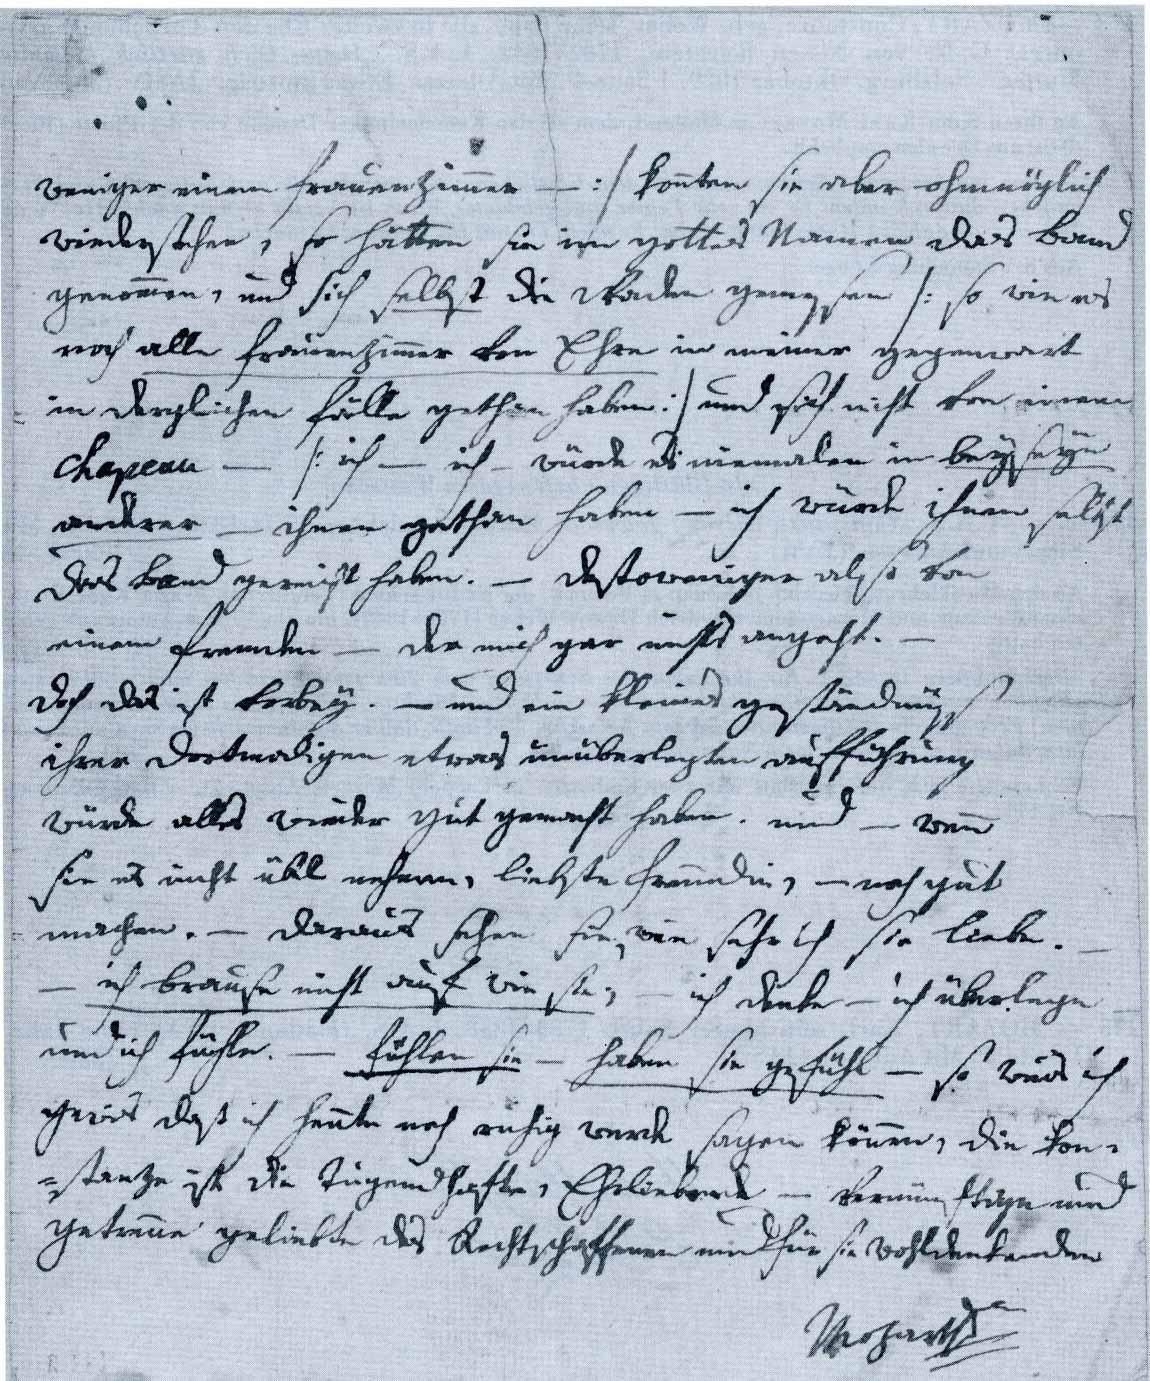 weniger einem frauenzimmer — :/ konnten sie aber ohnmöglich
wiederstehen, so hätten sie in gottes Namen das band
genommen, und sich selbst die Waden gemessen /: so wie es
noch alle frauenzimmer von Ehre in meiner gegenwart
in dergleichen fälle gethan haben :/ und sich nicht von einem
chapeau — /: ich — ich — würde es niemalen in beyseyn
anderer — ihnen gethan haben — ich würde ihnen selbst
das band gereicht haben. — destoweniger also von
einem fremden — der mich gar nichts angeht. —
doch das ist vorbey. — und ein kleines geständnüss
ihrer dortmaligen etwas unüberlegten aufführung
würde alles wieder gut gemacht haben. und — wenn
sie es nicht übel nehmen, liebste freundin, — noch gut
machen. — daraus sehen sie, wie sehr ich sie liebe. —
— ich brause nicht auf wie sie; — ich denke — ich überlege
und ich fühle. — fühlen sie — haben sie gefühl — so weis ich
gewis daß ich heute noch ruhig werde sagen können, die kon=
=stanze ist die tugendhafte, Ehrliebende — vernünftige und
getreue geliebte des Rechtschaffenen und für sie wohldenkenden
Mozart